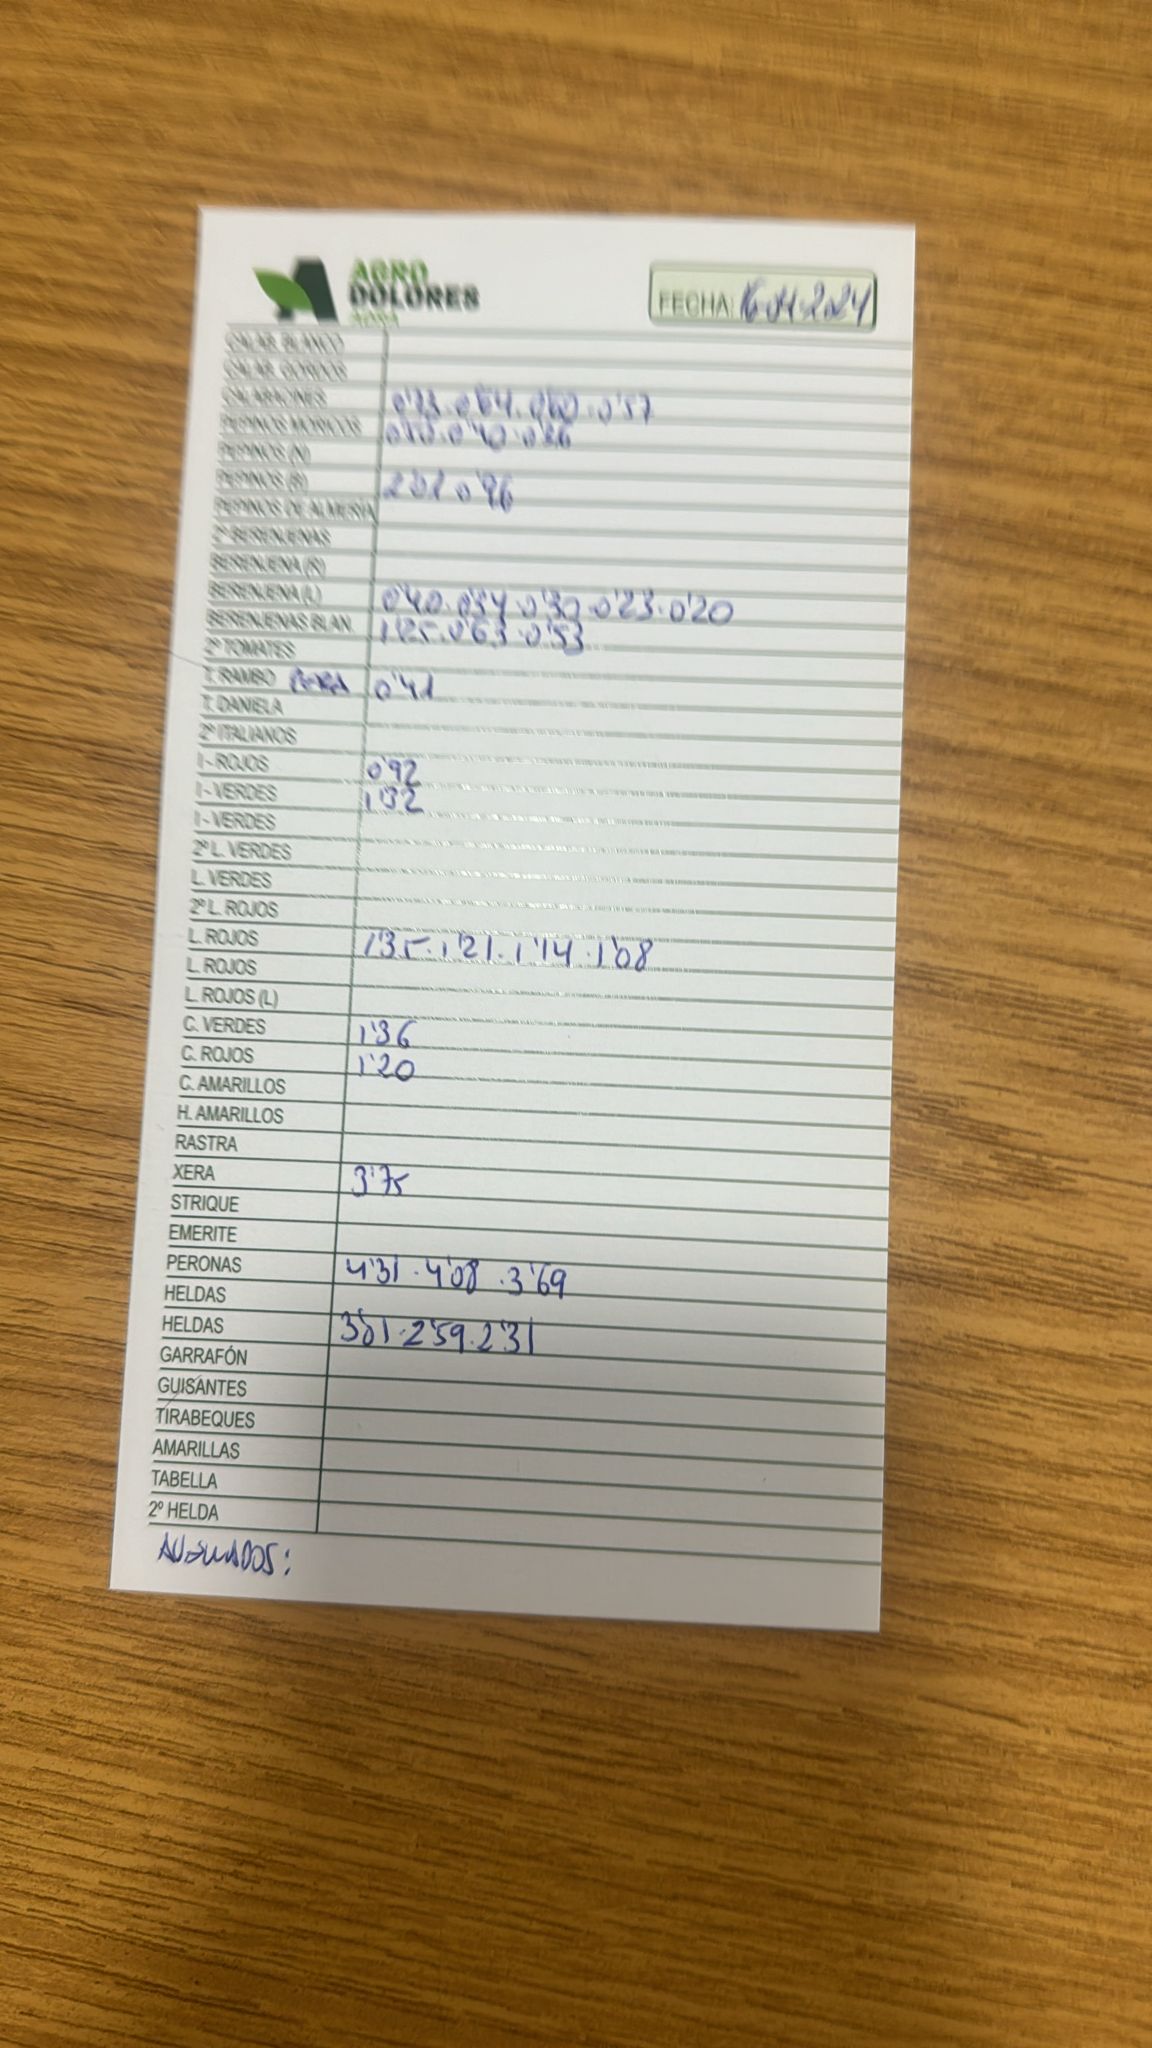 AGRO
DOLORES
FECHA: 16-04-2024
CALAB. BLANCO
CALAB. GORDOS
CALABACINES 0'73. 0'64. 0'60. 0'57
PEPINOS MORICOS 0'40. 0'36
PEPINOS (N)
PEPINOS (B) 0'96
PEPINOS DE ALMERIA
2º BERENJENAS
BERENJENA (R)
BERENJENA (L) 0'40. 0'34. 0'30. 0'23. 0'20
BERENJENAS BLAN. 1'25. 0'63. 0'53
2º TOMATES
T. RAMBO 0'41
T. DANIELA
2º ITALIANOS
I - ROJOS 0'92
I - VERDES 1'32
I - VERDES
2º L. VERDES
L. VERDES
2º L. ROJOS
L. ROJOS 1'35. 1'21. 1'14. 1'08
L. ROJOS
L. ROJOS (L)
C. VERDES 1'36
C. ROJOS 1'20
C. AMARILLOS
H. AMARILLOS
RASTRA
XERA 3'75
STRIQUE
EMERITE
PERONAS 4'31. 4'08. 3'69
HELDAS
HELDAS 2'59. 2'31
GARRAFÓN
GUISANTES
TIRABEQUES
AMARILLAS
TABELLA
2º HELDA